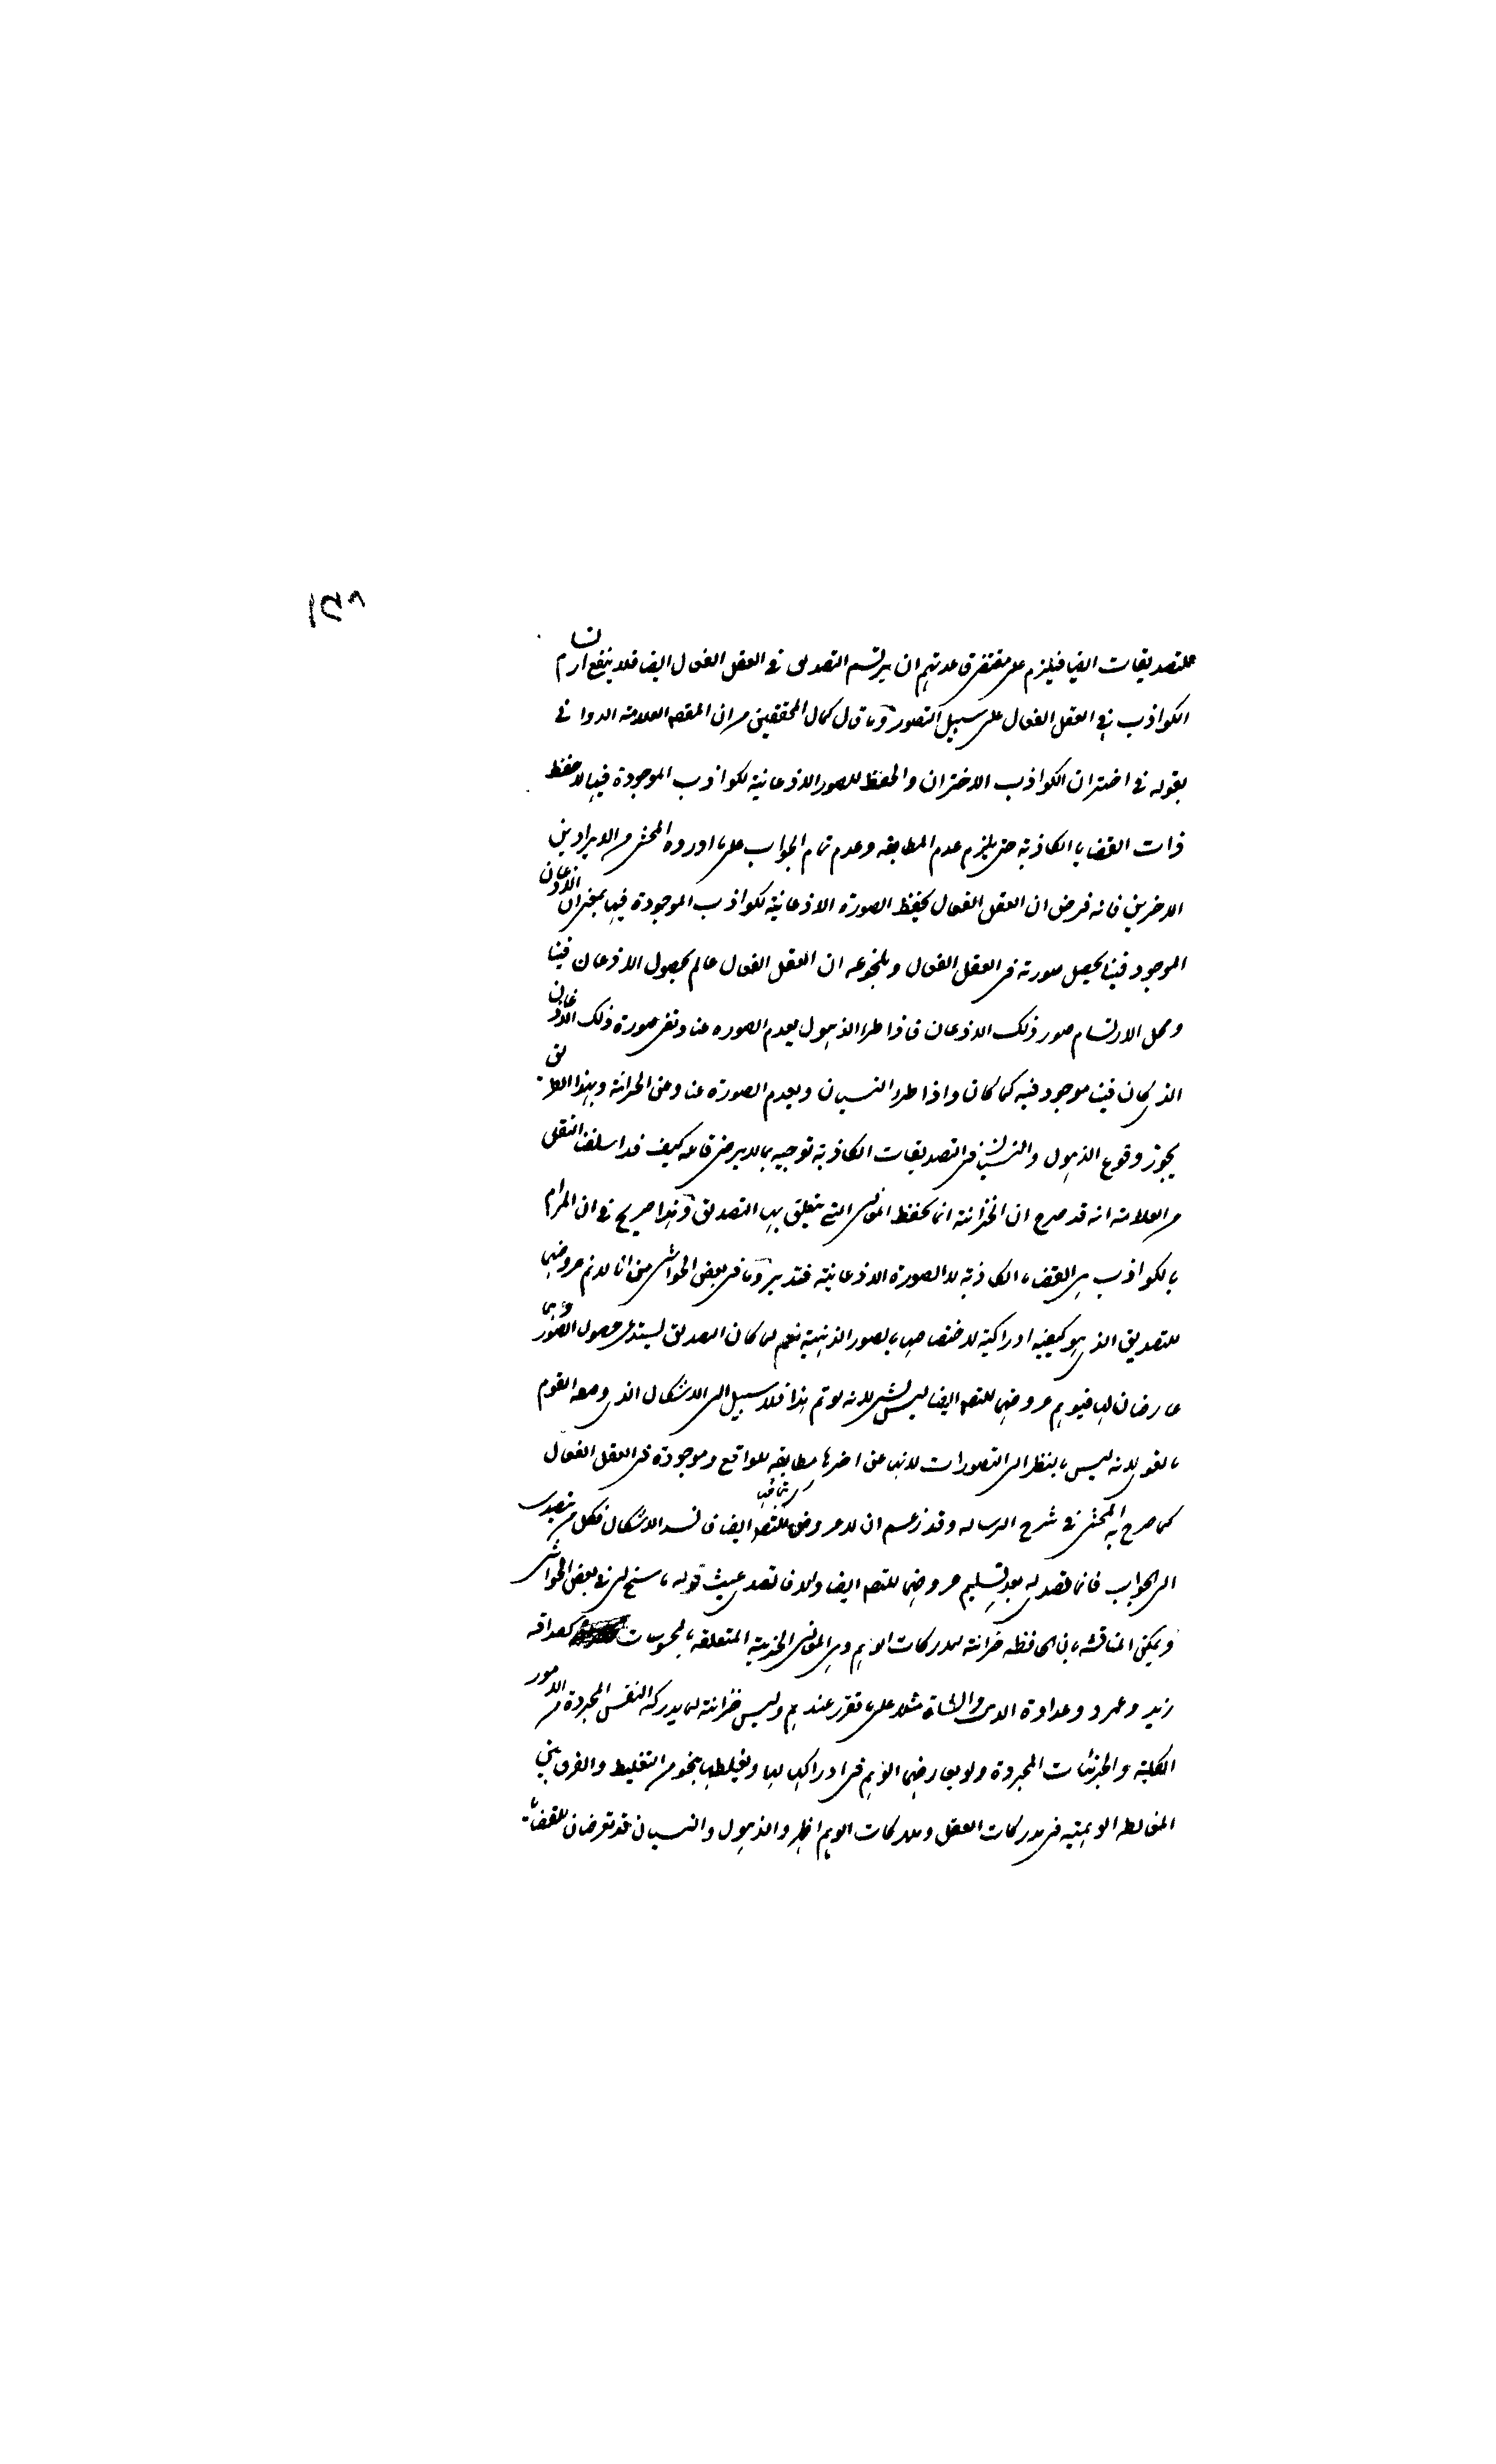 ١٥٨
للتصديقات ايضا فيلزم على مقتضى قاعدتهم ان يرتسم التصديق في العقل الفعال ايضا فلا ينفع ارتسام
الكواذب في العقل الفعال على سبيل التصور وما قال كمال المحققين من ان المقصد العلامة الدواني
بقوله في اختزان الكواذب الاختزان والحفظ للصور الاذعانية لكواذب الموجودة فيها لا حفظ
ذات القضايا الكاذبة حتى يلزم عدم المطابقة وعدم تمام الجواب على ما اورده المحشى من الايرادين
الاخرين فانه فرض ان العقل الفعال يحفظ الصورة الاذعانية لكواذب الموجودة فيها بمعنى ان الاذعان
الموجود فينا يحصل صورته في العقل الفعال و ان العقل الفعال عالم بحصول الاذعان فينا
ومحل الارتسام صور ذلك الاذعان فاذا طرا الذهول يعدم الصورة عنا وتبقى صورة ذلك الاذعان
الذى كان فينا موجود فيه كما كان واذا طرا النسيان ويعدم الصورة عنا وعن الخزانة وبهذا الطريق
يجوز وقوع الذهول والنسيان في التصديقات الكاذبة توجيه بما لا يرضى قائله كيف قد اسلفنا النقل
من العلامة انه قد صرح ان الخزانة انما تحفظ المعانى التى يتعلق بها التصديق وهذا صريح في ان المرام
بالكواذب هى القضايا الكاذبة لا الصورة الاذعانية فتدبر وما في بعض الحواشى من انا لا نم عروضها
للتصديق الذى هو كيفية ادراكية لاختصاصها بالصور الذهنية نعم لما كان التصديق يستدعى حصول الصور وهما
عارضان لها فيوهم عروضها للتصد ايضا ليس بشئ لانه لو تم هذا فلا سبيل الى الاشكال الذى وضعه القوم
لانه ليس بالنظر الى التصورات لانها عن اخرها مطابقة للواقع وموجودة في العقل الفعال
كما صرح به المحشى في شرح الرسالة وقد زعم ان لا عروض للتصد ايضا فانسد الاشكال فكل من تصدى
الى الجواب فانما تصدى له بعد تسليم عروضها للتصد ايضا والا فالتصدى عبث قوله ما سنح لى في بعض الحواشى
ويمكن المناقشة بان الحافظة خزانة لمدركات الوهم وهى المعانى الجزئية المتعلقة بالمحسوسات كصداقة
زيد وعمرو وعداوة الذئب والشاة مثلا على ما تقرر عندهم وليس خزانة لما يدركه النفس المجردة من الامور
الكلية والجزئيات المجردة ولو يعارضها الوهم في ادراكها لها ويغلطها بنحو من التغليط والفرق بين
المغالطة الوهمية في مدركات العقل ومدركات الوهم اظهر والذهول والنسيان قد تعرضان للقضايا